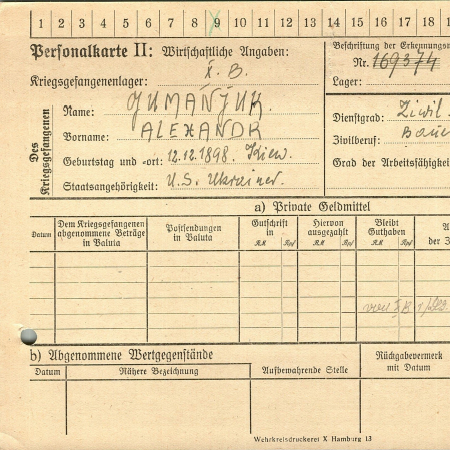 1 2 3 4 5 6 7 8 9 10 11 12 13 14 15 16 17 18
Personalkarte II: Wirtschaftliche Angaben:
Beschriftung der Erkennungsm
Nr. 169374
Kriegsgefangenenlager: X. B.
Lager:
Des Kriegsgefangenen
Name: JUMANJUK
Vorname: ALEXANDR
Geburtstag und -ort: 12.12.1898. Kiew.
Staatsangehörigkeit: U.S. Ukrainer.
Dienstgrad: Zivil
Zivilberuf: Bauer
Grad der Arbeitsfähigkeit
a) Private Geldmittel
Datum
Dem Kriegsgefangenen abgenommene Beträge in Valuta
Postsendungen in Valuta
Gutschrift in
RM Rpf
Hiervon ausgezahlt
RM Rpf
Bleibt Guthaben
RM Rpf
A
der 3
von X B
b) Abgenommene Wertgegenstände
Datum
Nähere Bezeichnung
Aufbewahrende Stelle
Rückgabevermerk mit Datum
Wehrkreisdruckerei X Hamburg 13